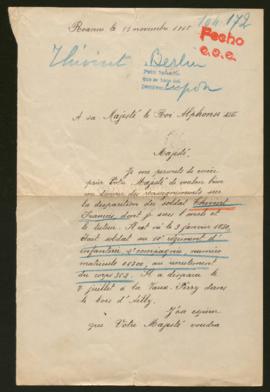 Roanne le 13 novembre 1915
104.172
Fecho
c.o.e.
Thivent
Berlin
Lyon
A sa Majesté le Roy Alphonse XIII
Majesté,
Je me permets de
pour Votre Majesté de vouloir bien
me donner des renseignements sur
la disparition du soldat Thivent
Francis, dont je suis l'oncle et
le tuteur. Il est né le 3 janvier 1890,
était soldat au régiment d'
infanterie, compagnie, numéro
matricule au recrutement
du corps 352. Il a disparu le
7 juillet à la Vaux Féry dans
le bois d'Ailly.
J'ose espérer
que Votre Majesté voudra